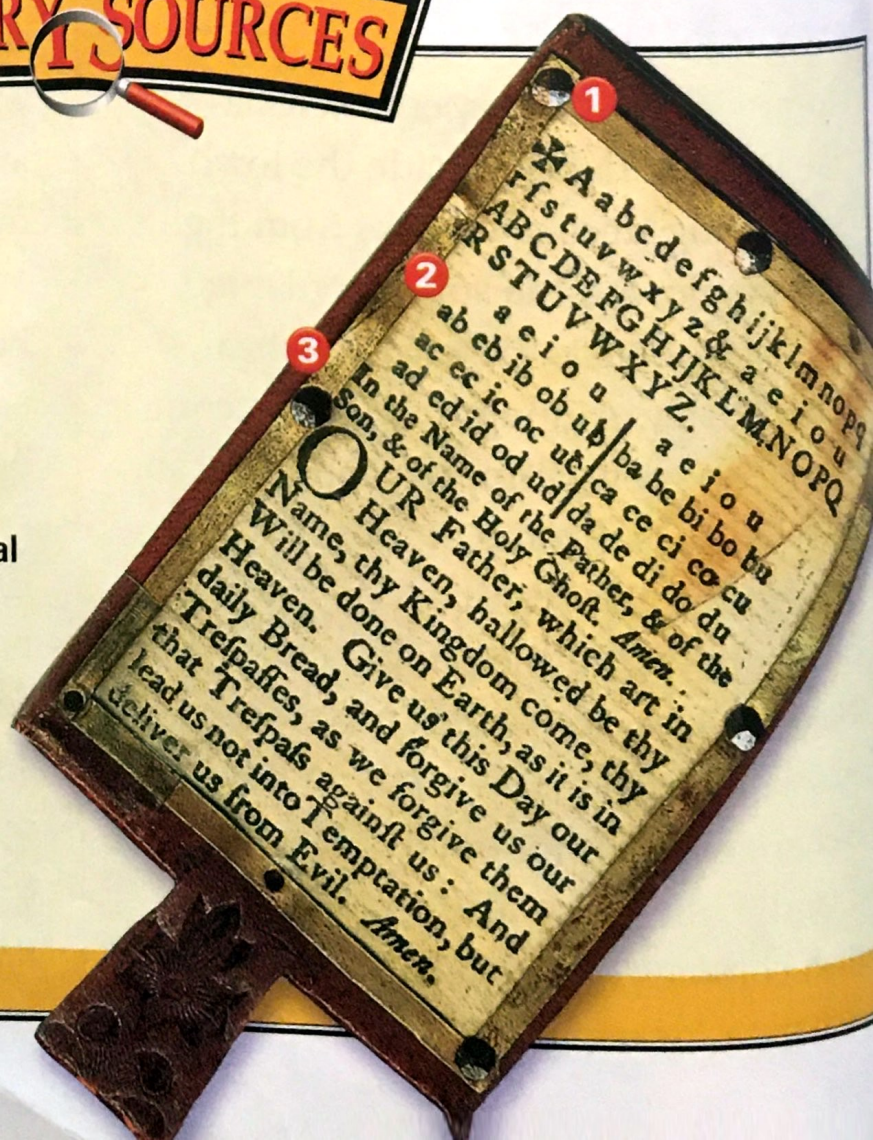 RY SOURCES
1
✠ A a b c d e f g h i j k l m n o p q
r ſ s t u v w x y z & a e i o u
A B C D E F G H I J K L M N O P Q
R S T U V W X Y Z.
2
a e i o u | a e i o u
ab eb ib ob ub | ba be bi bo bu
ac ec ic oc uc | ca ce ci co cu
ad ed id od ud | da de di do du
3
In the Name of the Father, & of the
Son, & of the Holy Ghoſt. Amen.
OUR Father, which art in
Heaven, hallowed be thy
Name, thy Kingdom come, thy
Will be done on Earth, as it is in
Heaven. Give us this Day our
daily Bread, and forgive us our
Treſpaſſes, as we forgive them
that Treſpaſs againſt us: And
lead us not into Temptation, but
deliver us from Evil. Amen.
al